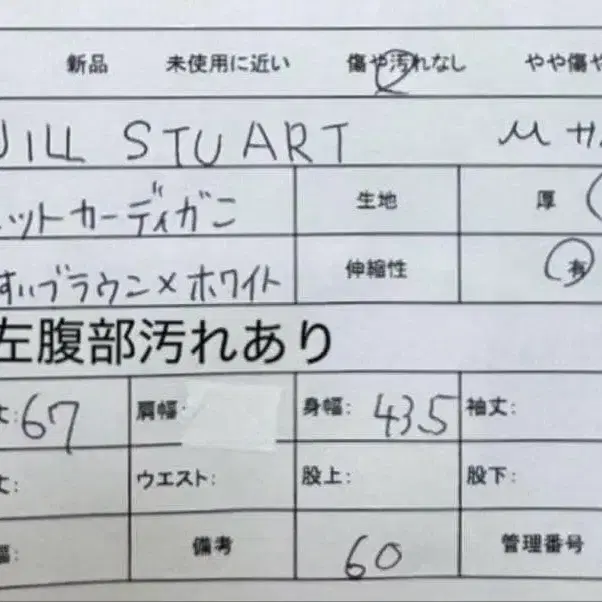 新品 未使用に近い 傷や汚れなし やや傷や
JILL STUART M サ
ニットカーディガン 生地 厚
すいブラウン×ホワイト 伸縮性 有
左腹部汚れあり
丈:67 肩幅: 身幅: 43.5 袖丈:
丈: ウエスト: 股上: 股下:
幅: 備考 60 管理番号